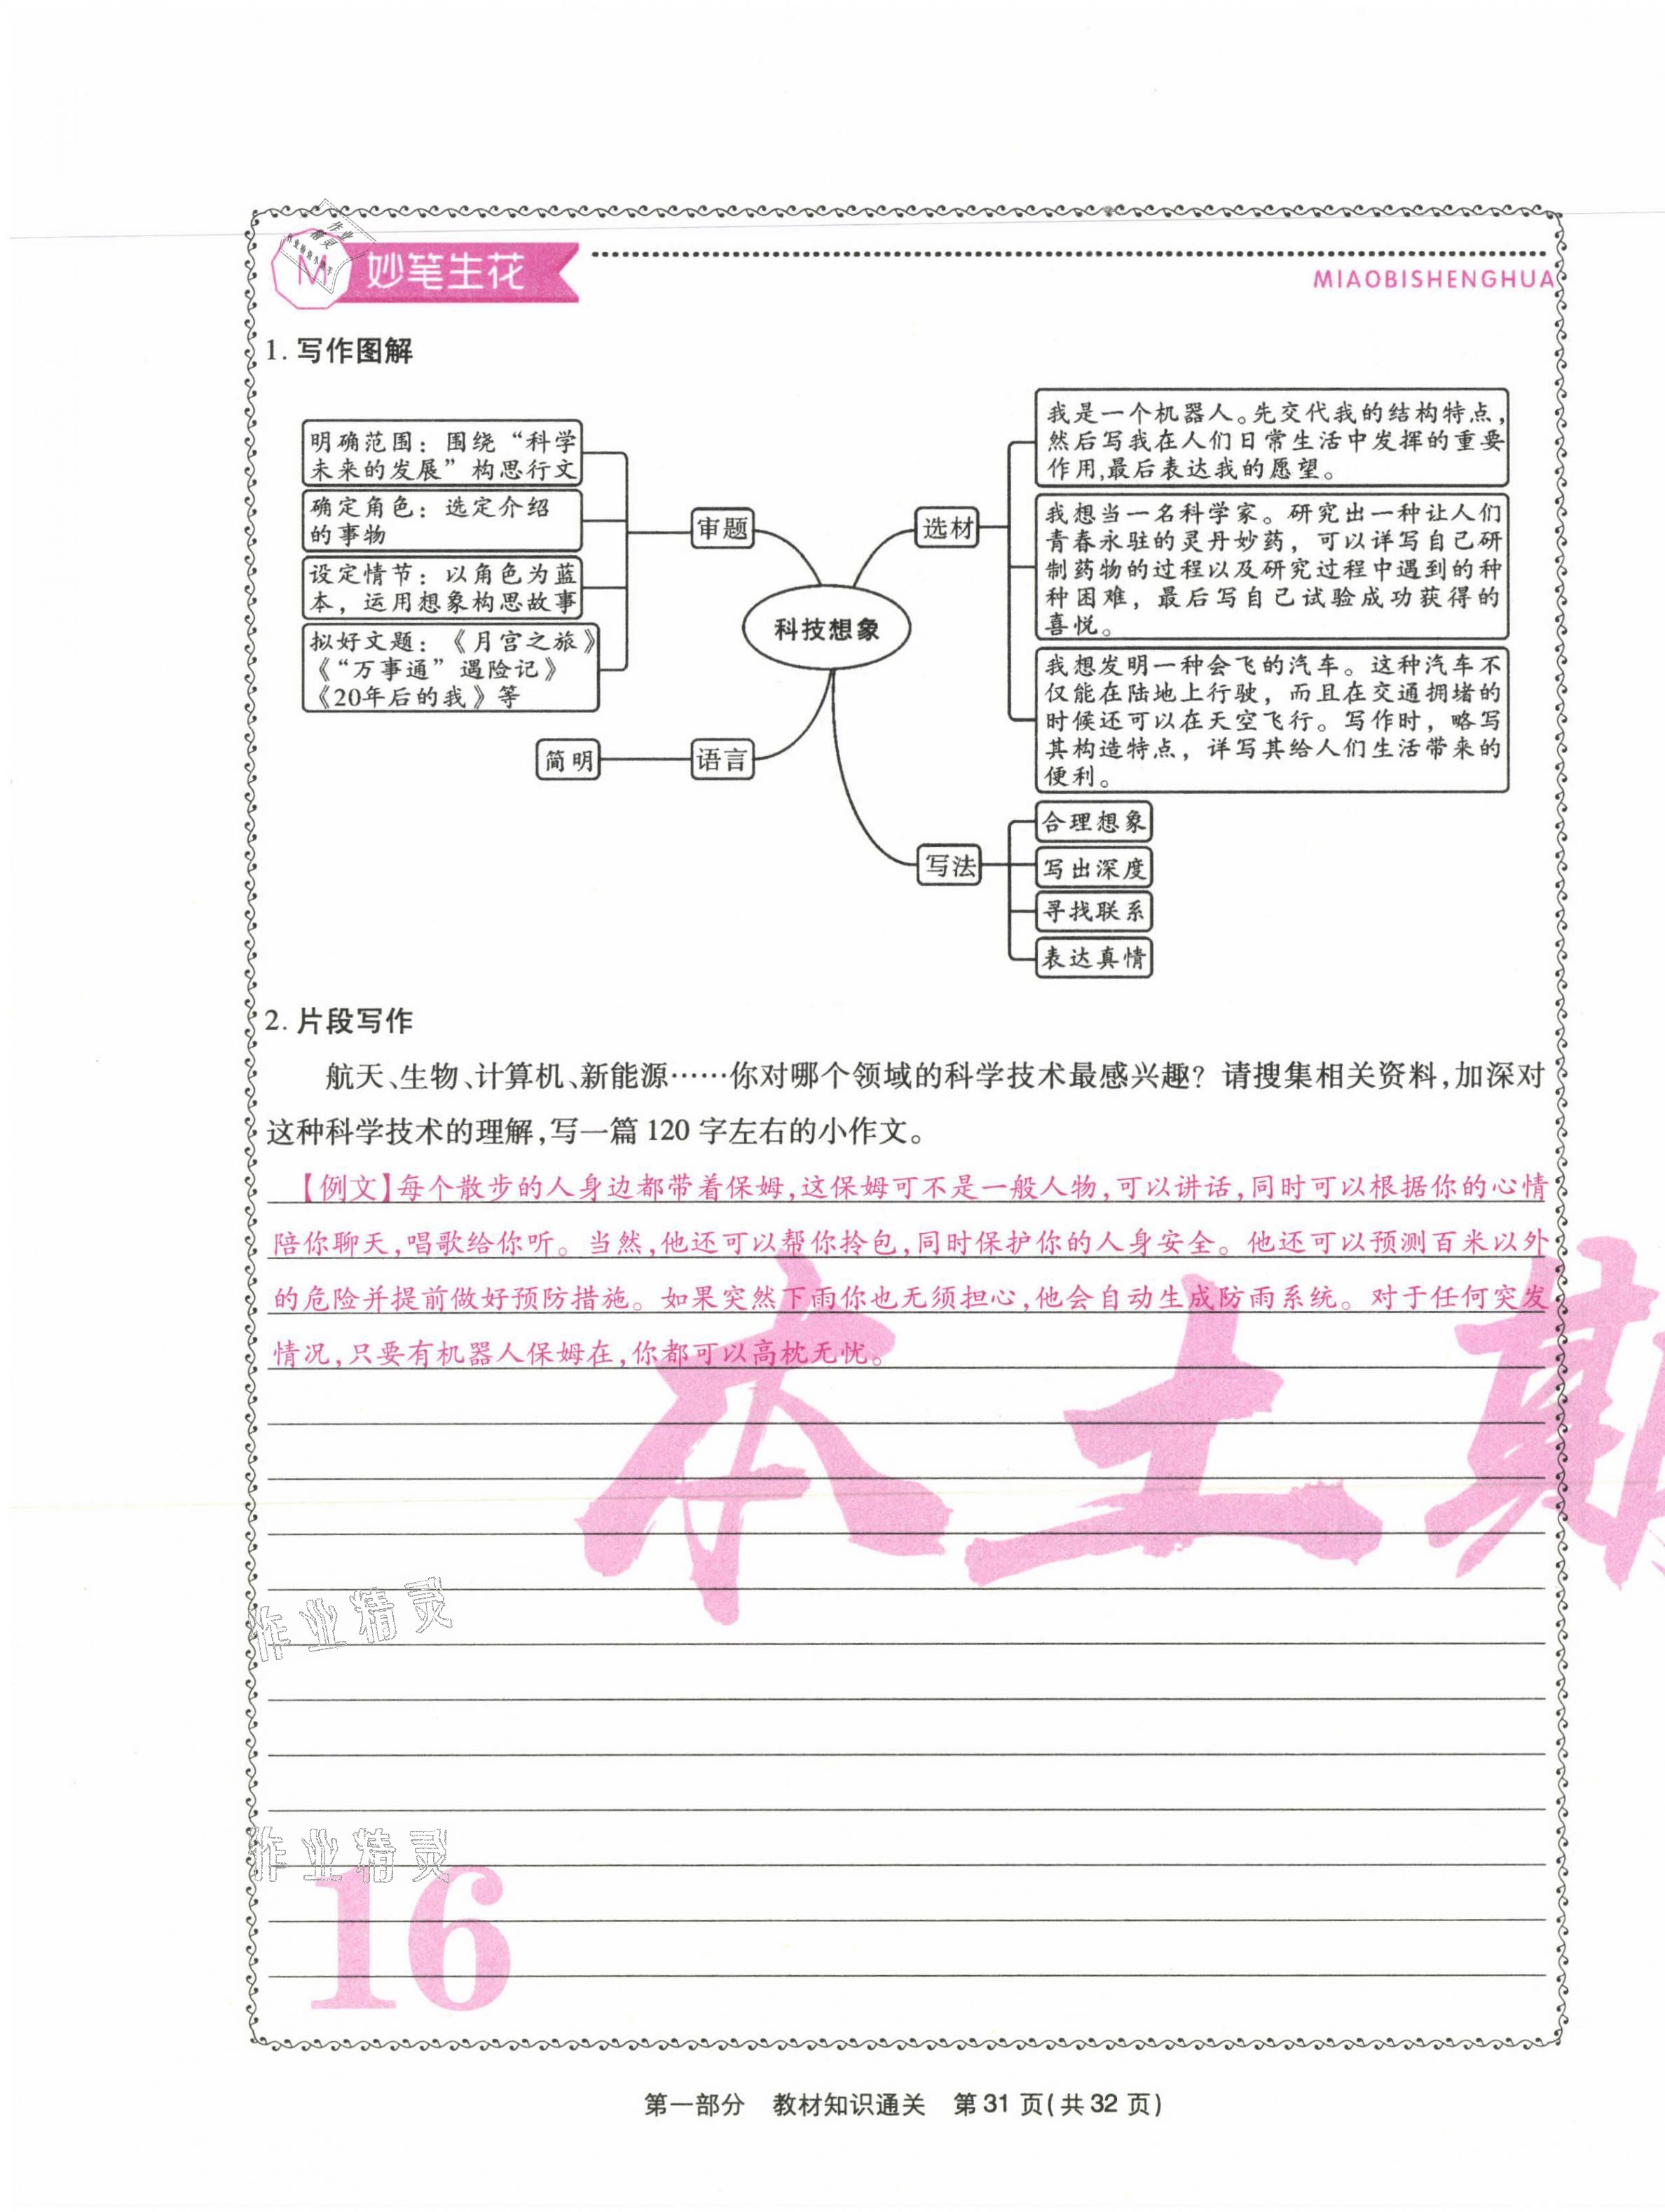 M 妙笔生花
MIAOBISHENGHUA
1. 写作图解
明确范围：围绕“科学
未来的发展”构思行文
确定角色：选定介绍
的事物
设定情节：以角色为蓝
本，运用想象构思故事
拟好文题：《月宫之旅》
《“万事通”遇险记》
《20年后的我》等
审题
简明
语言
科技想象
选材
我是一个机器人。先交代我的结构特点，
然后写我在人们日常生活中发挥的重要
作用,最后表达我的愿望。
我想当一名科学家。研究出一种让人们
青春永驻的灵丹妙药，可以详写自己研
制药物的过程以及研究过程中遇到的种
种困难，最后写自己试验成功获得的
喜悦。
我想发明一种会飞的汽车。这种汽车不
仅能在陆地上行驶，而且在交通拥堵的
时候还可以在天空飞行。写作时，略写
其构造特点，详写其给人们生活带来的
便利。
写法
合理想象
写出深度
寻找联系
表达真情
2. 片段写作
航天、生物、计算机、新能源……你对哪个领域的科学技术最感兴趣？请搜集相关资料,加深对
这种科学技术的理解,写一篇 120 字左右的小作文。
【例文】每个散步的人身边都带着保姆,这保姆可不是一般人物,可以讲话,同时可以根据你的心情
陪你聊天,唱歌给你听。当然,他还可以帮你拎包,同时保护你的人身安全。他还可以预测百米以外
的危险并提前做好预防措施。如果突然下雨你也无须担心,他会自动生成防雨系统。对于任何突发
情况,只要有机器人保姆在,你都可以高枕无忧。
本土期
作业精灵
作业精灵
16
第一部分 教材知识通关 第 31 页(共 32 页)